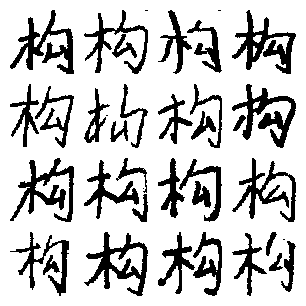 构构构构
构构构构
构构构构
构构构构